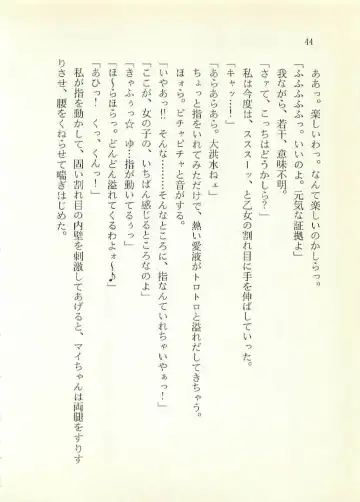 44
ああっ。楽しいわっ。なんて楽しいのかしらっ。
「ふふふふふっ。いいのよ。元気な証拠よ」
我ながら、若干、意味不明。
「さァて、こっちはどうかしら？」
私は今度は、スススーッ、と乙女の割れ目に手を伸ばしていった。
「キャッ…！」
「あらあらあら。大洪水ねェ」
ちょっと指をいれてみただけで、熱い愛液がトロトロと溢れだしてきちゃう。
ほォら。ピチャピチャと音がする。
「いやあっ‼　そんな……そんなところに、指なんていれちゃいやぁっ！」
「ここが、女の子の、いちばん感じるところなのよ」
「きゃふぅっ☆　ゆ…指が動いてるぅっ」
「ほ〜らほらっ。どんどん溢れてくるわよォ〜♪」
「あひっ！　くっ、くんっ！」
私が指を動かして、固い割れ目の内壁を刺激してあげると、マイちゃんは両腿をすりす
りさせ、腰をくねらせて喘ぎはじめた。